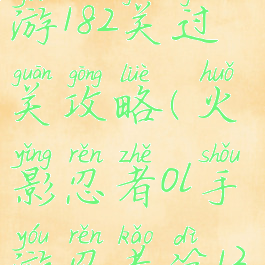 游182关过
guān gōng lüè huǒ
关攻略(火
yǐng rěn zhě shǒu
影忍者ol手
yóu rěn kǎo dì